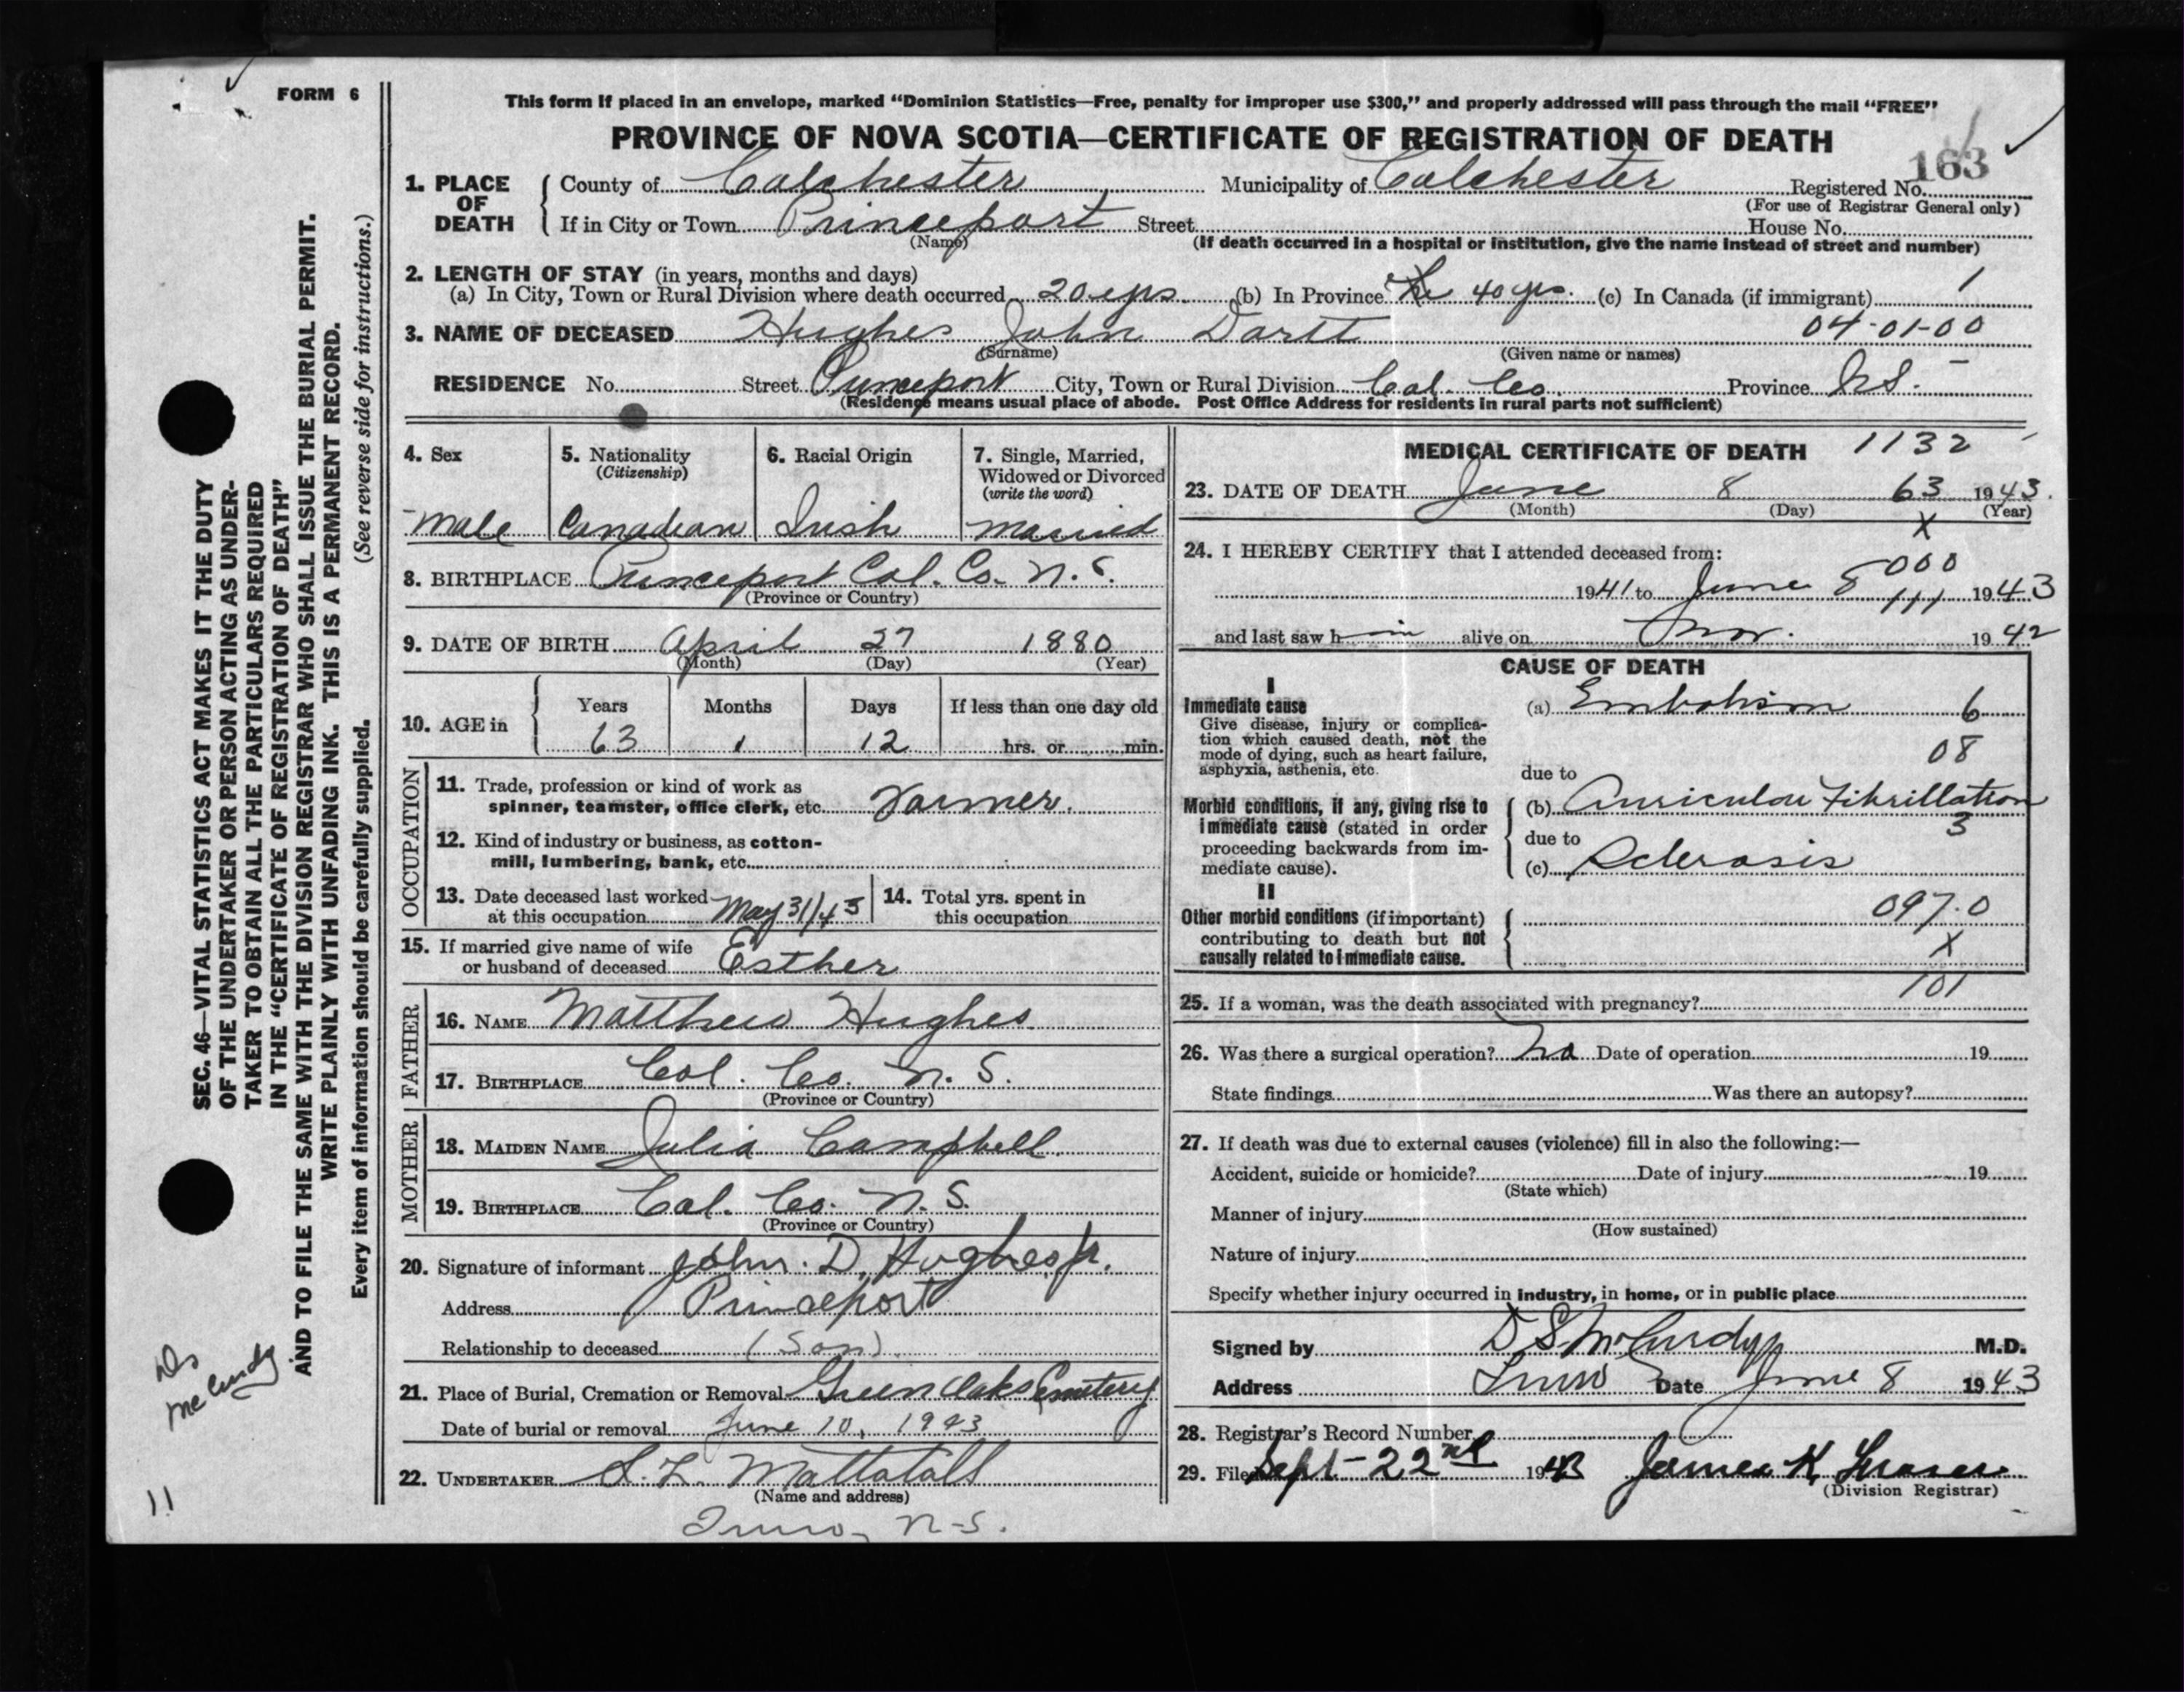 FORM 6
This form if placed in an envelope, marked “Dominion Statistics—Free, penalty for improper use $300,” and properly addressed will pass through the mail “FREE”
PROVINCE OF NOVA SCOTIA—CERTIFICATE OF REGISTRATION OF DEATH
163
1. PLACE OF DEATH County of Colchester Municipality of Colchester Registered No.
(For use of Registrar General only)
If in City or Town Princeport Street House No.
(Name) (If death occurred in a hospital or institution, give the name instead of street and number)
2. LENGTH OF STAY (in years, months and days)
(a) In City, Town or Rural Division where death occurred 20 yrs (b) In Province 40 yrs. (c) In Canada (if immigrant) 1
04-01-00
3. NAME OF DECEASED Hughes John Dartt
(Surname) (Given name or names)
RESIDENCE No. Street Princeport City, Town or Rural Division Col. Co. Province N.S.
(Residence means usual place of abode. Post Office Address for residents in rural parts not sufficient)
4. Sex
male
5. Nationality
(Citizenship)
Canadian
6. Racial Origin
Irish
7. Single, Married,
Widowed or Divorced
(write the word)
married
8. BIRTHPLACE Princeport Col. Co. N.S.
(Province or Country)
9. DATE OF BIRTH April 27 1880
(Month) (Day) (Year)
10. AGE in Years Months Days If less than one day old
63 1 12 hrs. or min.
OCCUPATION
11. Trade, profession or kind of work as
spinner, teamster, office clerk, etc. Farmer.
12. Kind of industry or business, as cotton-
mill, lumbering, bank, etc.
13. Date deceased last worked
at this occupation May 31/43
14. Total yrs. spent in
this occupation
15. If married give name of wife
or husband of deceased Esther
FATHER
16. NAME Matthew Hughes
17. BIRTHPLACE Col. Co. N.S.
(Province or Country)
MOTHER
18. MAIDEN NAME Julia Campbell
19. BIRTHPLACE Col. Co. N.S.
(Province or Country)
20. Signature of informant John. D. Hughes jr.
Address Princeport
Relationship to deceased (Son)
21. Place of Burial, Cremation or Removal Green Oaks Cemetery
Date of burial or removal June 10, 1943
22. UNDERTAKER S. L. Mattatall
(Name and address)
Truro, N-S.
MEDICAL CERTIFICATE OF DEATH 1132
23. DATE OF DEATH June 8 63 1943.
(Month) (Day) (Year)
X
24. I HEREBY CERTIFY that I attended deceased from:
000
1941 to June 8 1943
111
and last saw him alive on Nov. 1942
CAUSE OF DEATH
I
Immediate cause
Give disease, injury or complica-
tion which caused death, not the
mode of dying, such as heart failure,
asphyxia, asthenia, etc.
(a) Embolism 6
08
due to
Morbid conditions, if any, giving rise to
immediate cause (stated in order
proceeding backwards from im-
mediate cause).
(b) Auricular Fibrillation
3
due to
(c) Sclerosis
II
Other morbid conditions (if important)
contributing to death but not
causally related to immediate cause.
097.0
X
101
25. If a woman, was the death associated with pregnancy?
26. Was there a surgical operation? No Date of operation 19
State findings Was there an autopsy?
27. If death was due to external causes (violence) fill in also the following:—
Accident, suicide or homicide? Date of injury 19
(State which)
Manner of injury
(How sustained)
Nature of injury
Specify whether injury occurred in industry, in home, or in public place
Signed by D S McCurdy M.D.
Address Truro Date June 8 1943
28. Registrar's Record Number
29. Filed Sept-22nd 1943 James K Fraser
(Division Registrar)
SEC. 46—VITAL STATISTICS ACT MAKES IT THE DUTY
OF THE UNDERTAKER OR PERSON ACTING AS UNDER-
TAKER TO OBTAIN ALL THE PARTICULARS REQUIRED
IN THE “CERTIFICATE OF REGISTRATION OF DEATH”
AND TO FILE THE SAME WITH THE DIVISION REGISTRAR WHO SHALL ISSUE THE BURIAL PERMIT.
WRITE PLAINLY WITH UNFADING INK. THIS IS A PERMANENT RECORD.
Every item of information should be carefully supplied. (See reverse side for instructions.)
Ds
McCurdy
11